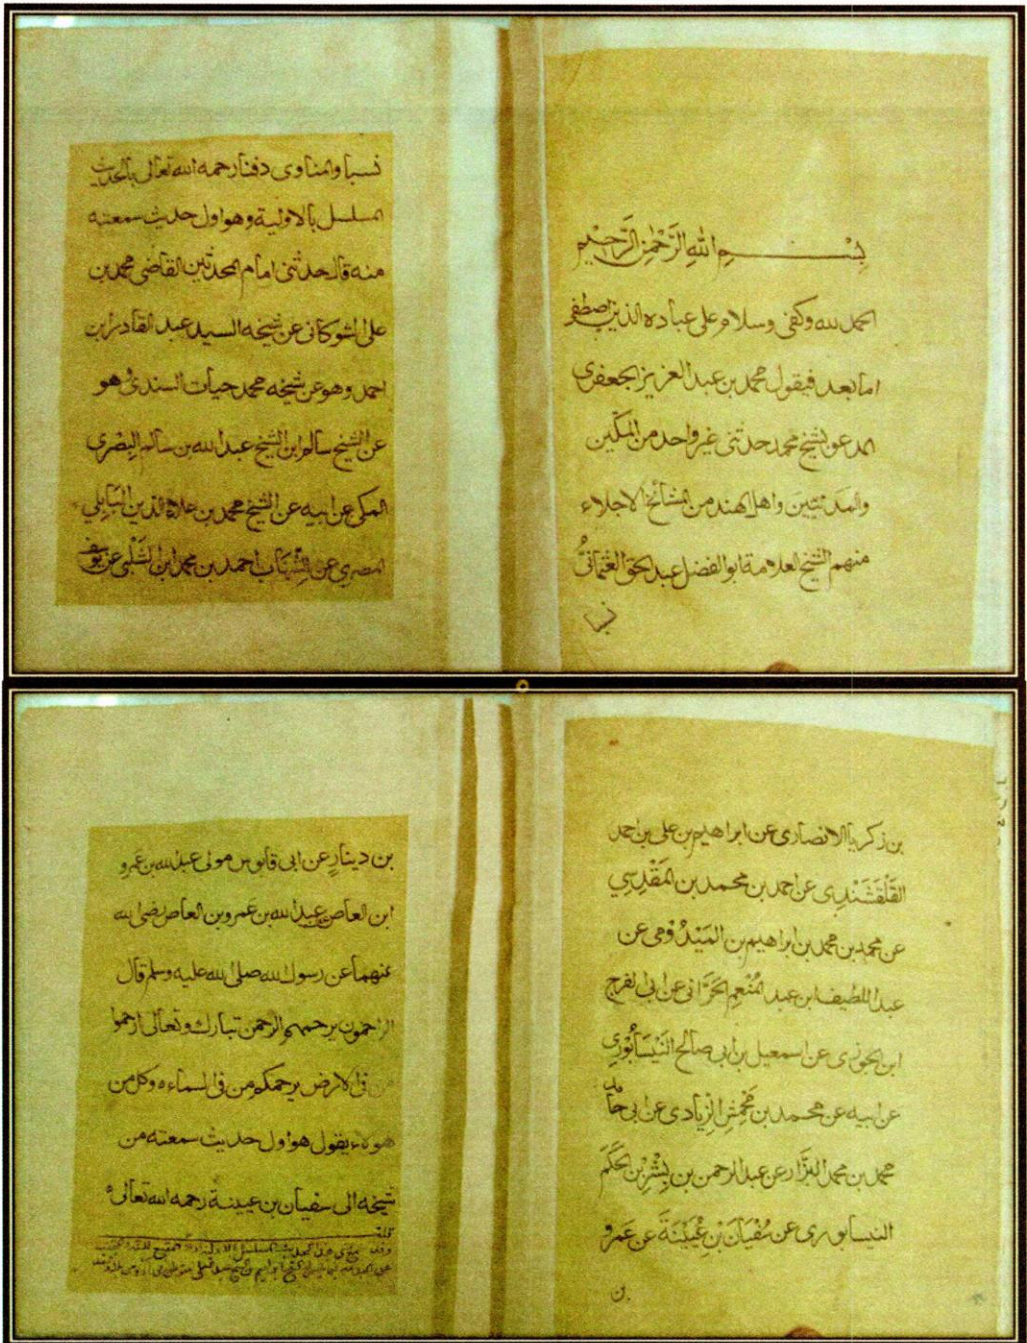 بِسْــــــمِ اللهِ الرَّحْمٰنِ الرَّحِيْمِ
الحمد لله وكفى وسلام على عباده الذين اصطفى
اما بعد فيقول محمد بن عبد العزيز الجعفرى
المدعو بشيخ محمد حدثنى غير واحد من المكين
والمدنيين واهل الهند من المشائخ الاجلاء
منهم الشيخ العلامة ابو الفضل عبد الحق العثمانىُّ
نسبا والمناوى دفنا رحمه الله تعالى بالحديث
المسلسل بالاولية وهو اول حديث سمعته
منه قال حدثنى امام المحدثين القاضى محمد بن
على الشوكانى عن شيخه السيد عبد القادر ابن
احمد وهو عن شيخه محمد حيات السندى وهو
عن الشيخ سالم ابن الشيخ عبد الله بن سالم البصرى
المكى عن ابيه عن الشيخ محمد بن علاء الدين البابِلي
المصرى عن الشِّهاب احمد بن محمد ابن الشَّلْبى عن يوسف
بن زكريا الانصارى عن ابراهيم بن على بن احمد
القَلْقَشَنْدِى عن احمد بن محمد بن المَقْدِسِي
عن محمد بن محمد بن ابراهيم بن المَيْدُوْمى عن
عبد اللطيف ابن عبد المُنْعِم الحَرَّانى عن ابى الفرج
ابن الجوزى عن اسمعيل بن ابى صالح النَّيْسَابُوْرِى
عن ابيه عن محمد بن مَحْمِشِ الزيادى عن ابى حامد
محمد بن محمد البزَّار عن عبد الرحمن بن بِشْرِ بْنِ الحَكَمْ
النيسابورى عن سُفْيَانَ بْنِ عُيَيْنَةَ عن عَمرو
بن
بن دينارٍ عن ابى قابوس مولى عبد الله بن عمرو
ابن العاص عن عبد الله بن عمرو بن العاص رضى الله
عنهما عن رسول الله صلى الله عليه وسلم قال
الراحمون يرحمهم الرحمن تبارك وتعالى ارحموا
من فى الارض يرحمكم من فى السماء ه وكل من
هولاء يقول هو اول حديث سمعته من
شيخه الى سفيان بن عيينة رحمه الله تعالىٰ